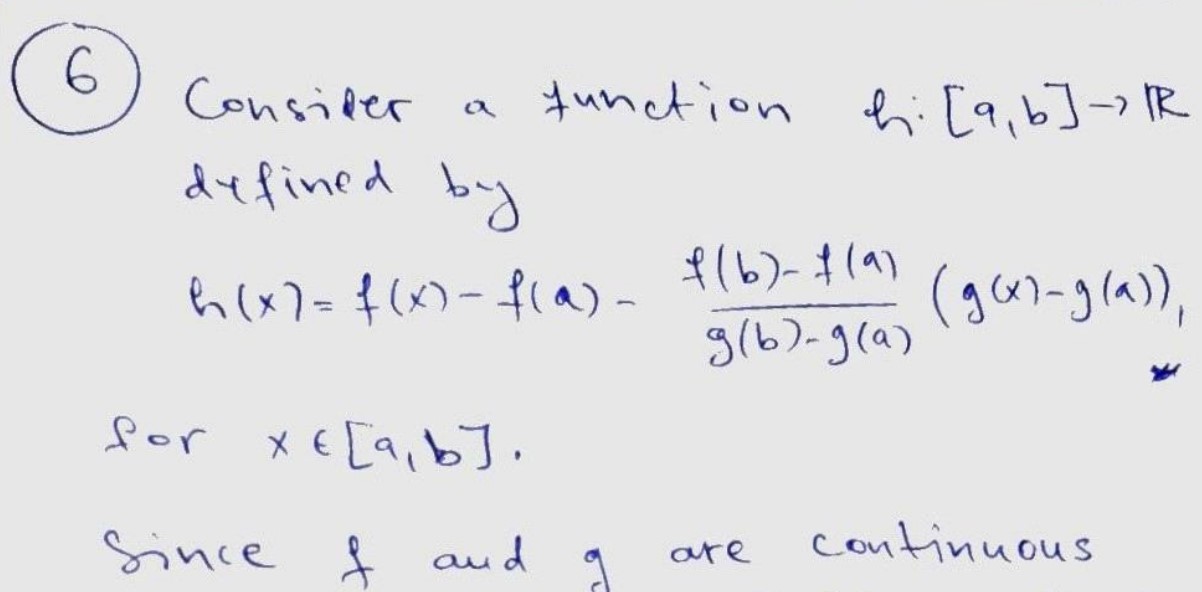 6 Consider a function h: [a,b] → ℝ
defined by
h(x) = f(x) - f(a) - \frac{f(b)-f(a)}{g(b)-g(a)} (g(x)-g(a)),
for x ∈ [a,b].
Since f and g are continuous